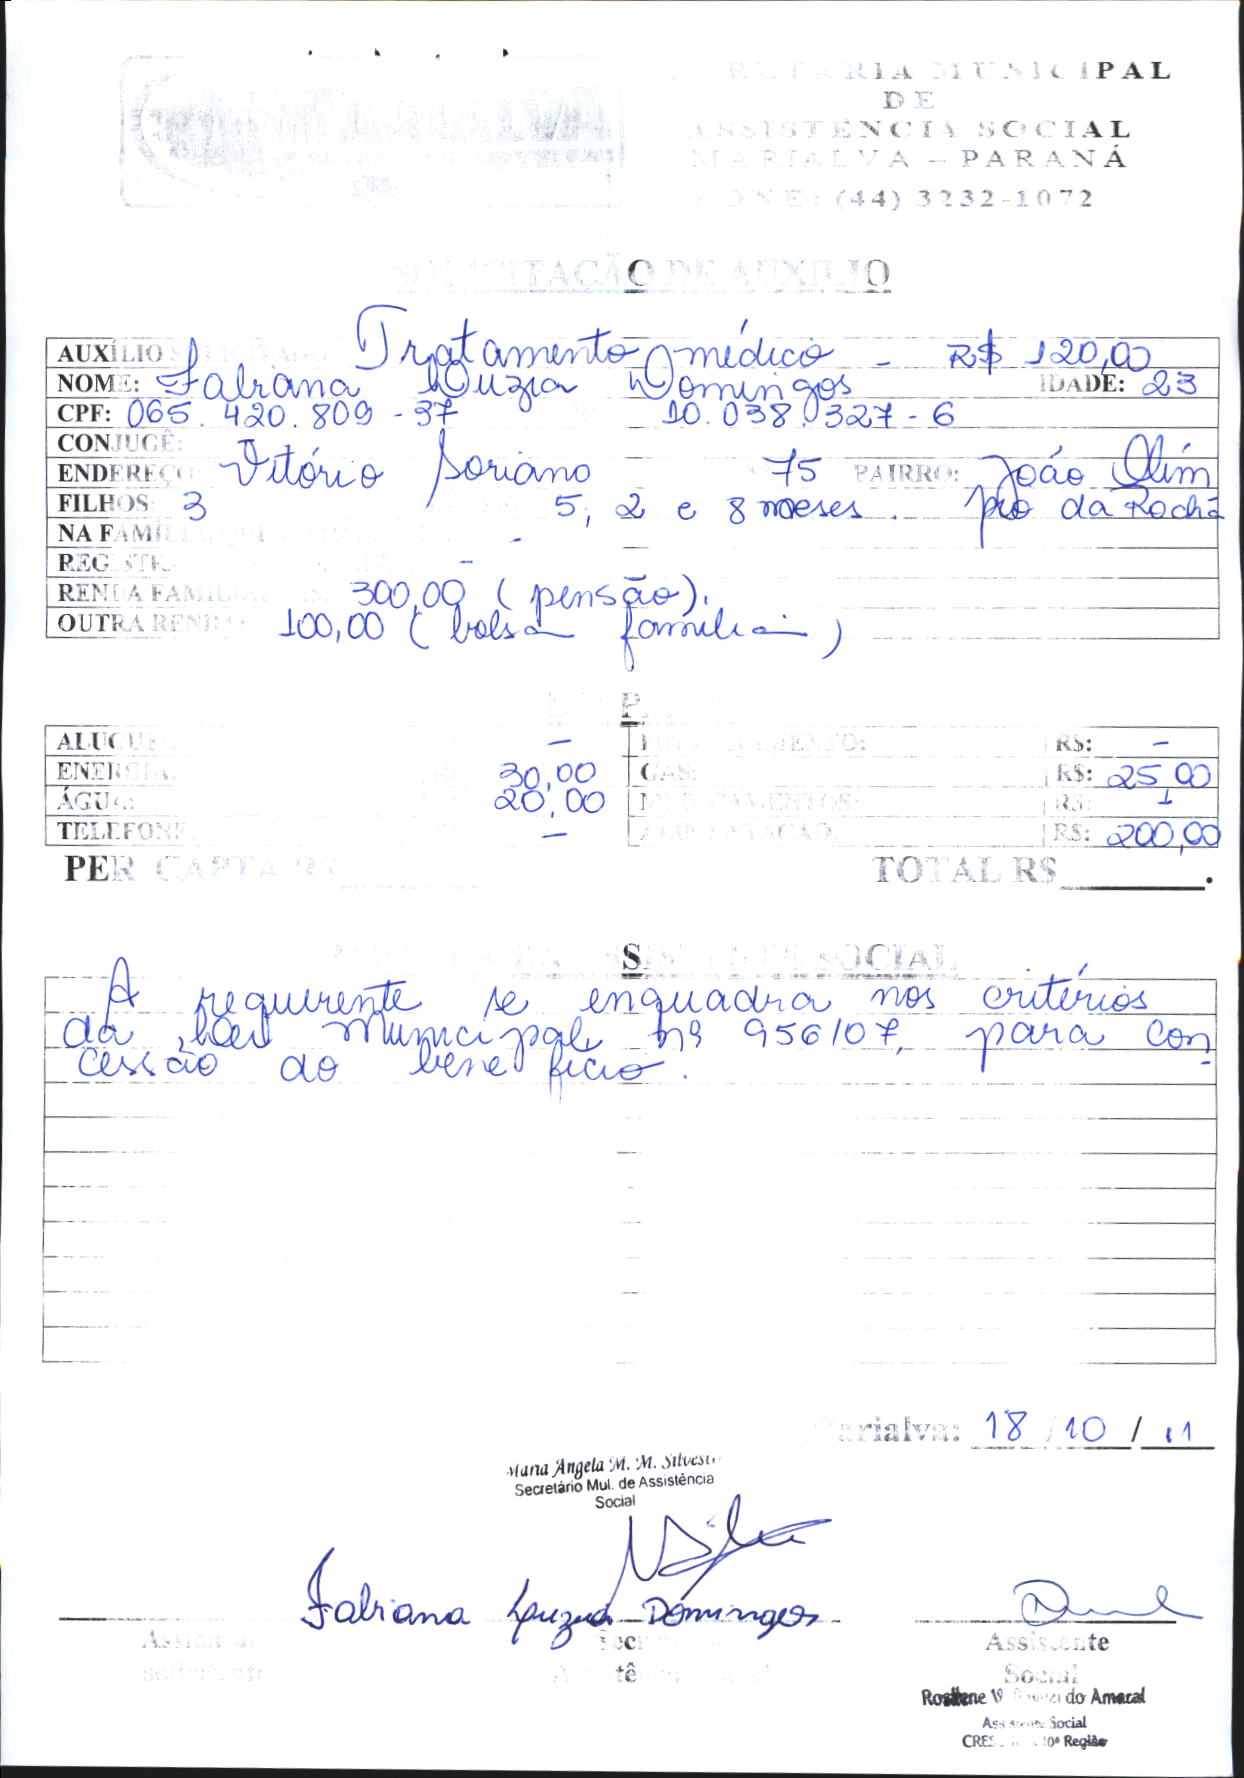 SECRETARIA MUNICIPAL
DE
ASSISTÊNCIA SOCIAL
MARIALVA – PARANÁ
FONE: (44) 3232-1072
SOLICITAÇÃO DE AUXÍLIO
AUXÍLIO SOLICITADO Tratamento médico - R$ 120,00
NOME: Fabiana Luzia Domingos IDADE: 23
CPF: 065.420.809-37 10.038.327-6
CONJUGÊ:
ENDEREÇO: Vitório Soriano 75 BAIRRO: João Olím
FILHOS: 3 5, 2 e 8 meses. pio da Rocha
NA FAMÍLIA, -
REGISTR -
RENDA FAMILIAR R$: 300,00 (pensão).
OUTRA RENDA: 100,00 (bolsa família)
ALUGUEL - FINANCIAMENTO: R$: -
ENERGIA: 30,00 GÁS: R$: 25,00
ÁGUA: 20,00 MEDICAMENTOS: R$: -
TELEFONE - ALIMENTAÇÃO: R$: 200,00
PER CAPTA R$ TOTAL R$ .
ASSISTENTE SOCIAL
A requerente se enquadra nos critérios
da Lei Municipal nº 956/07, para con
cessão do benefício.
Marialva: 18/10/11
Maria Angela M. M. Silvestr
Secretário Mul. de Assistência
Social
Fabiana Luzia Domingos
Assinatura Secretária Assistente
solicitante Assistência Social Social
Rosilene do Amaral
Assistente Social
CRES 10ª Região